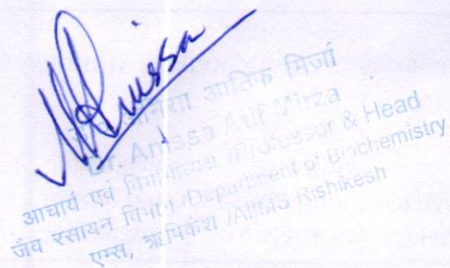 Anissa
आतिफ मिर्जा
Dr. Anissa Atif Mirza
आचार्य एवं विभागाध्यक्ष /Professor & Head
जैव रसायन विभाग /Department of Biochemistry
एम्स, ऋषिकेश /AIIMS Rishikesh